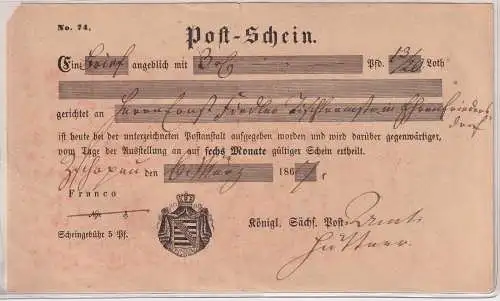 No. 74.
Post-Schein.
Ein Brief angeblich mit Pfd. 13/20 Loth
gerichtet an Herrn Ernst Fiedler Tischlermstr in Ehrenfriedersdorf
ist heute bei der unterzeichneten Postanstalt aufgegeben worden und wird darüber gegenwärtiger,
vom Tage der Ausstellung an auf sechs Monate gültiger Schein ertheilt.
Zschopau den 6 März 1867
Franco
Scheingebühr 5 Pf.
Königl. Sächs. Post-Amt
Hüttner